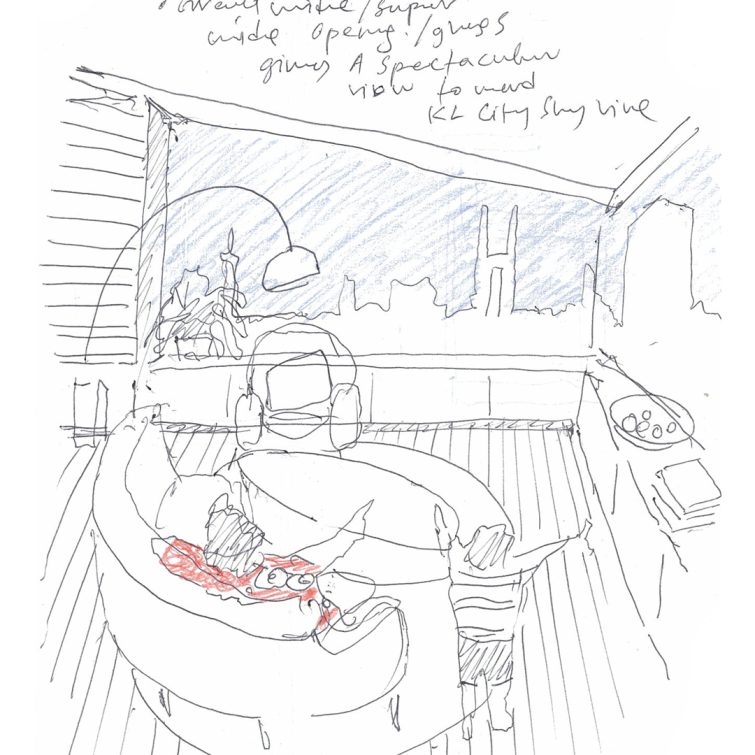 wide opening/glass
gives A spectacular
view toward
KL City Sky line